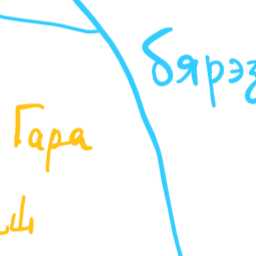 бярэз
Гара